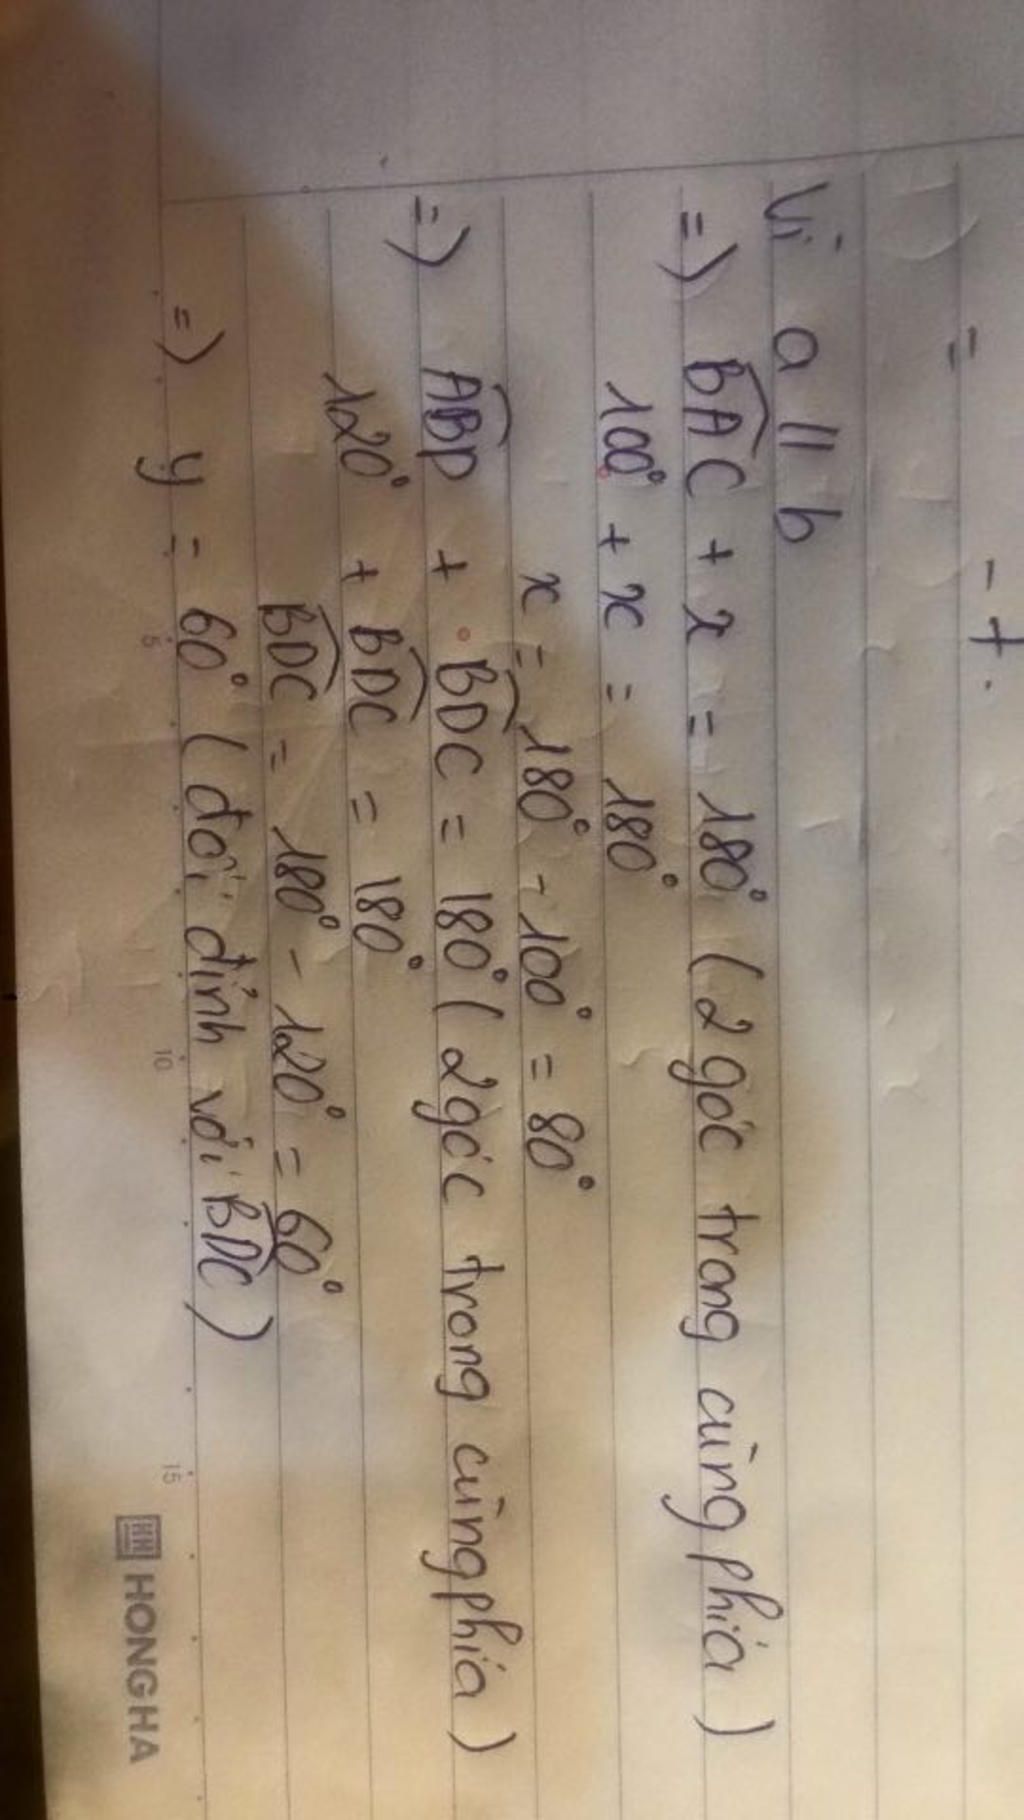 = - 7.
Vì a // b
=) BAC + x = 180° (2 góc trong cùng phía)
100° + x = 180°
x = 180° - 100° = 80°
=) ABD + BDC = 180° (2 góc trong cùng phía)
120° + BDC = 180°
BDC = 180° - 120° = 60°
=) y = 60° (đối đỉnh với BDC)
5 10 15
HH HONG HA